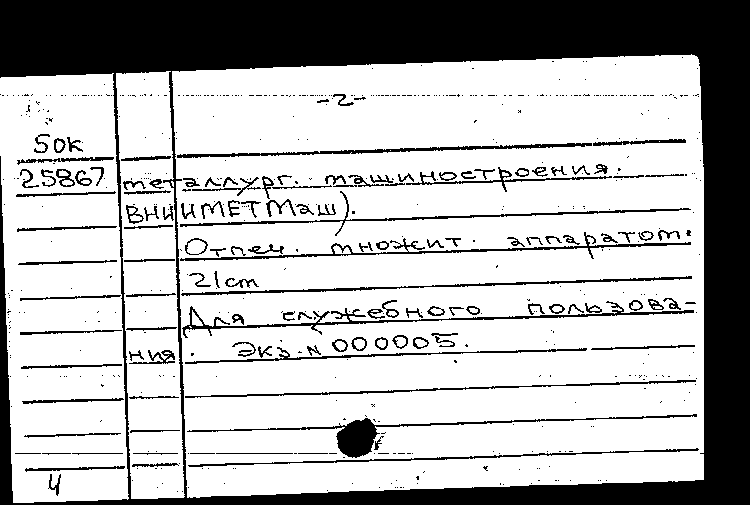 -2-
50к
25867 металлург. машиностроения.
ВНИИМЕТМаш).
Отпеч. множит. аппаратом.
21cm
Для служебного пользова-
ния. Экз. N 000005.
4